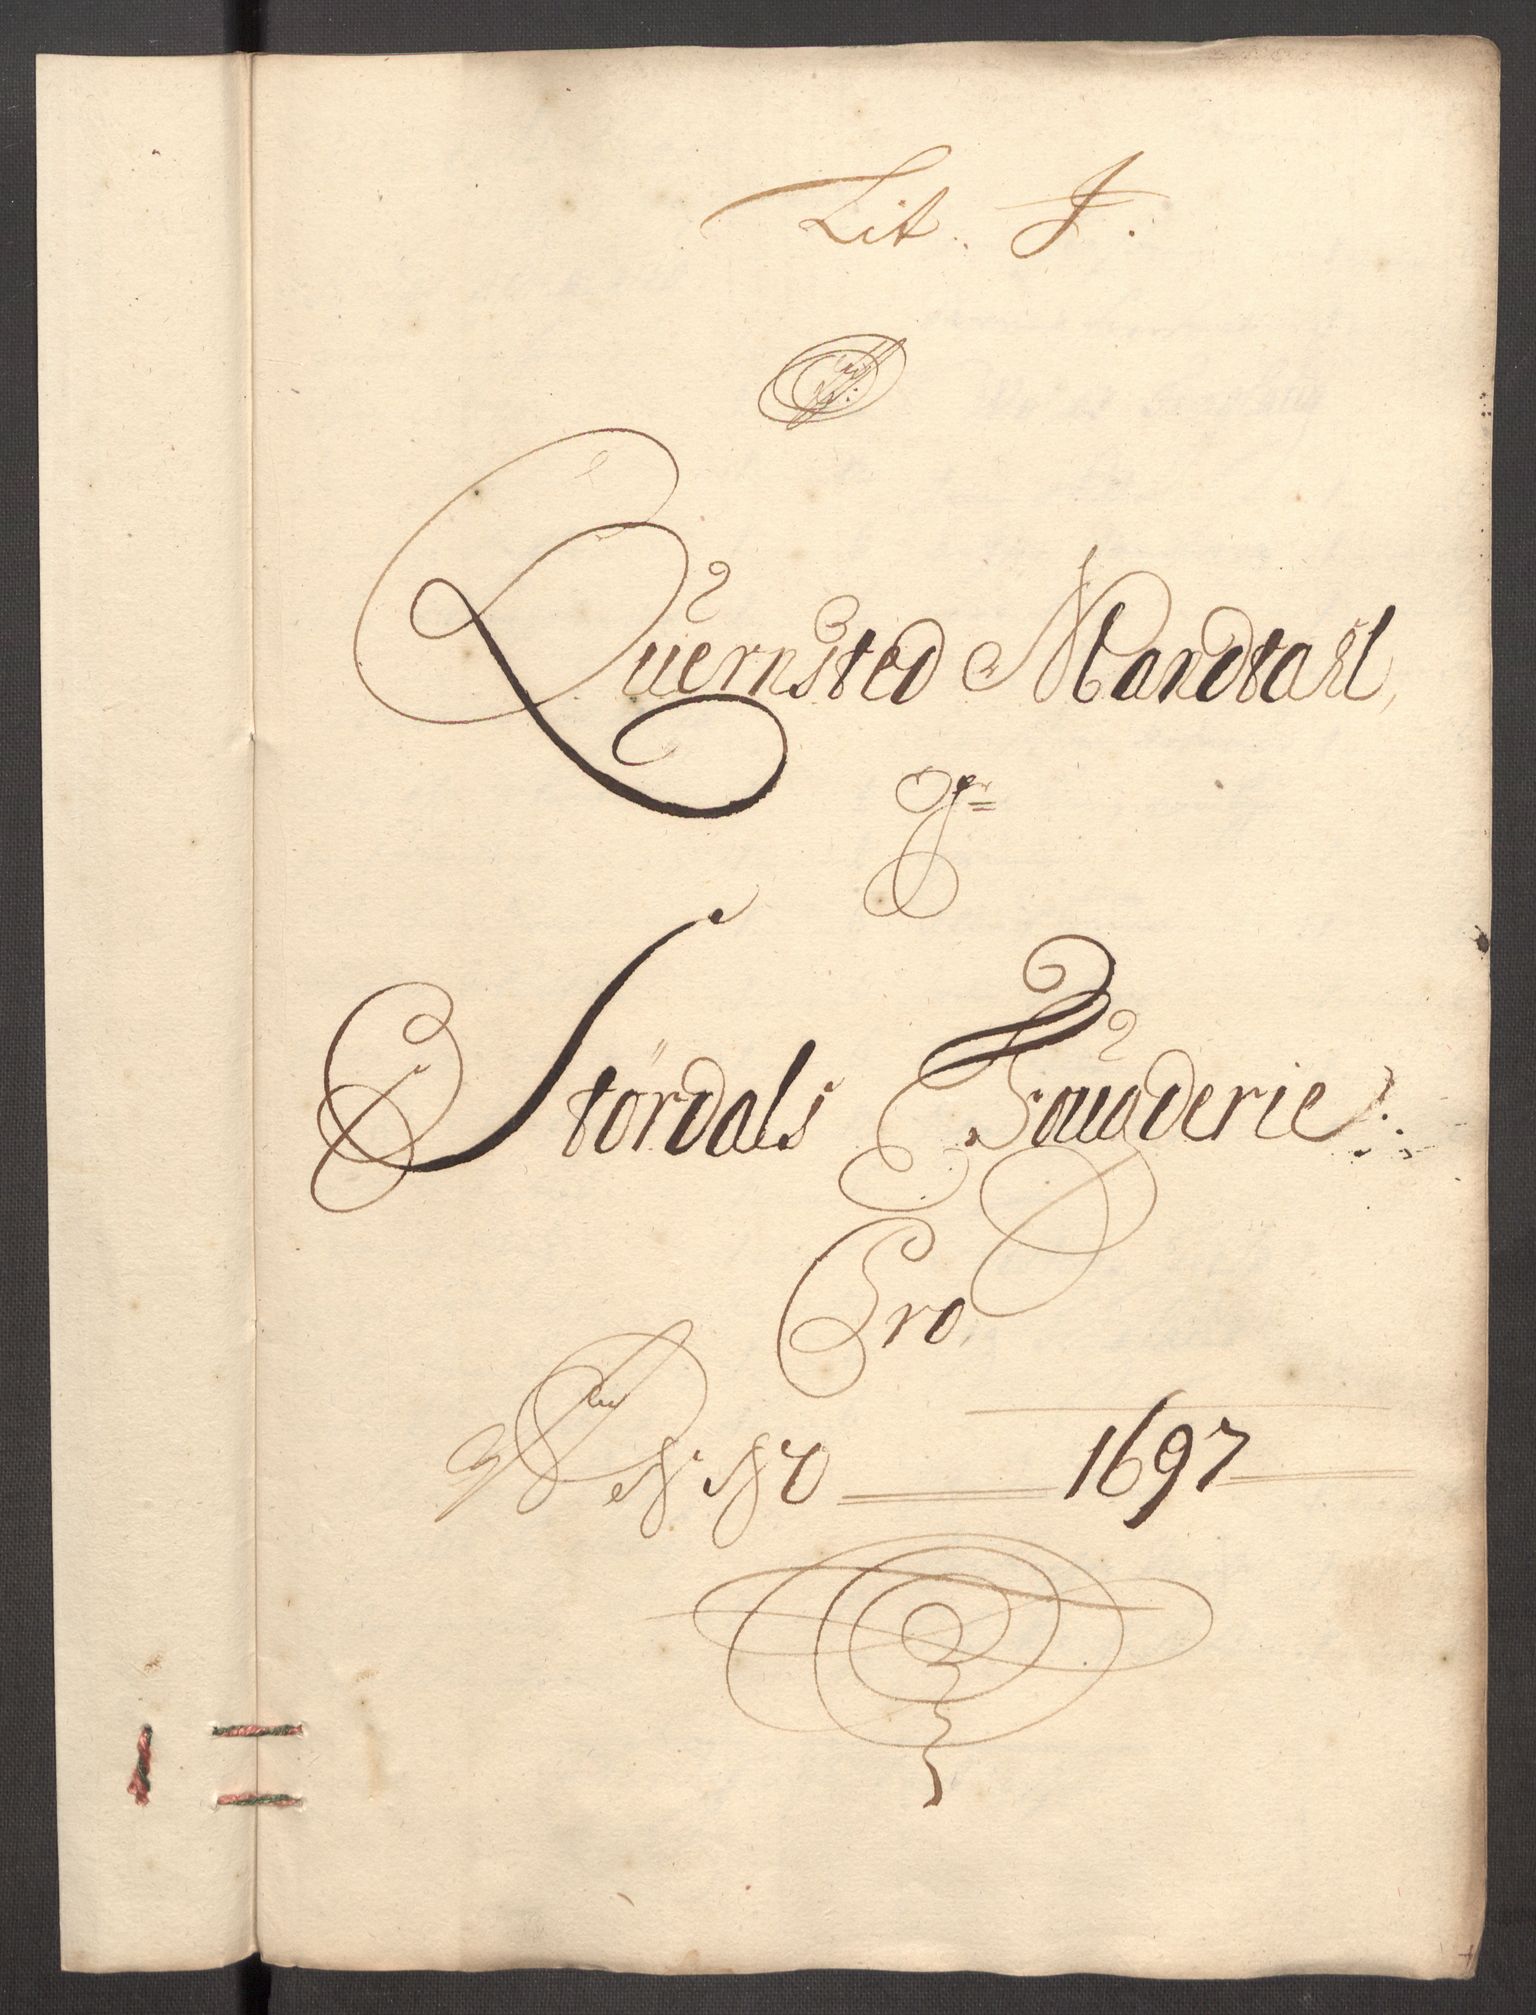 Lit. J.
Quernsted Mandtall
Størdals Fougderie
Pro
ANNO 1697